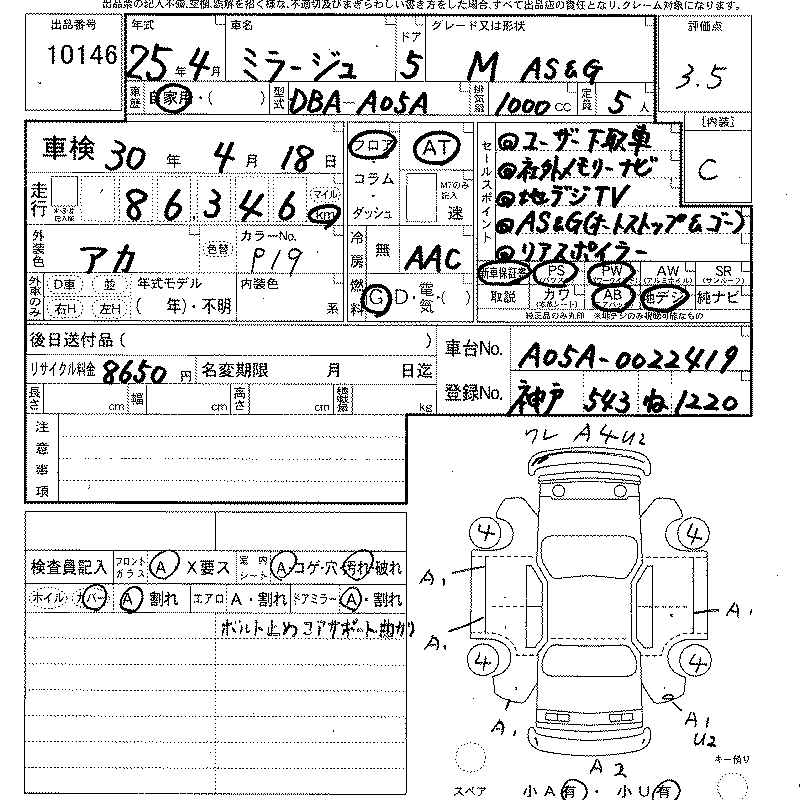 出品票の記入不備、空欄、誤解を招く様な、不適切及びまぎらわしい書き方をした場合、すべて出品店の責任となり、クレーム対象になります。
出品番号 10146
年式 25年4月
車名 ミラージュ
ドア 5
グレード又は形状 M AS&G
評価点 3.5
車歴 自家用・( )
型式 DBA-A05A
排気量 1000cc
定員 5人
[内装] C
車検 30年 4月 18日
走行 86,346 マイル km
フロア コラム・ダッシュ
AT
M7のみ記入 速
セールスポイント
@ユーザー下取車
@社外メモリーナビ
@地デジTV
@AS&G(オートストップ&ゴー)
@リアスポイラー
外装色 アカ 色替
カラーNo. P19
冷房 無 AAC
新車保証書 PS PW AW SR
取説 カワ AB 地デジ 純ナビ
純正品のみ丸印 ※地デジのみ視聴可能なもの
外車のみ D車 並 右H 左H
年式モデル ( 年)・不明
内装色 系
燃料 G D・電気・( )
後日送付品( )
リサイクル料金 8650円
名変期限 月 日迄
車台No. A05A-0022419
登録No. 神戸 543 ね 1220
長さ cm 幅 cm 高さ cm kg
注意事項
検査員記入
フロントガラス A X要ス
室内シート A・コゲ・穴・汚れ・破れ
ホイル カバー A 割れ
エアロ A・割れ
ドアミラー A・割れ
ボルト止めコアサポート曲がり
ワレ A4U2
4 4
A1
A1
A1
4 4
A1
A1
U2
A2
スペア
キー傷り
小A有・小U有